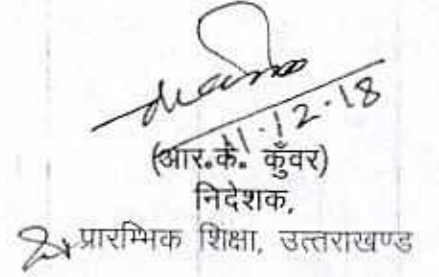 11.12.18
(आर.के. कुँवर)
निदेशक,
प्रारम्भिक शिक्षा, उत्तराखण्ड